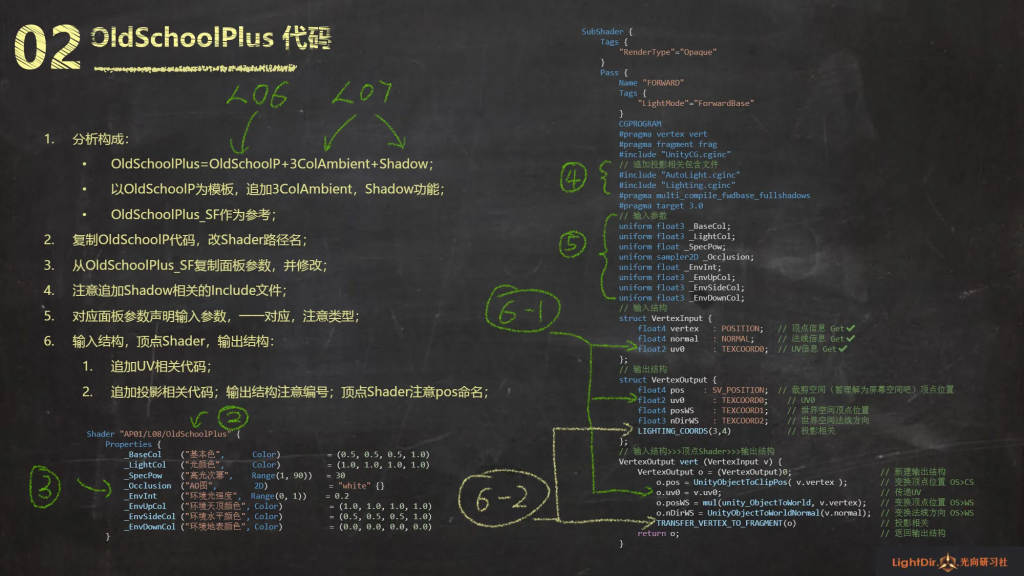 02 OldSchoolPlus 代码
L06 L07
1. 分析构成：
• OldSchoolPlus=OldSchoolP+3ColAmbient+Shadow；
• 以OldSchoolP为模板，追加3ColAmbient，Shadow功能；
• OldSchoolPlus_SF作为参考；
2. 复制OldSchoolP代码，改Shader路径名；
3. 从OldSchoolPlus_SF复制面板参数，并修改；
4. 注意追加Shadow相关的Include文件；
5. 对应面板参数声明输入参数，一一对应，注意类型；
6. 输入结构，顶点Shader，输出结构：
1. 追加UV相关代码；
2. 追加投影相关代码；输出结构注意编号；顶点Shader注意pos命名；
②
Shader "AP01/L08/OldSchoolPlus" {
Properties {
_BaseCol ("基本色", Color) = (0.5, 0.5, 0.5, 1.0)
_LightCol ("光颜色", Color) = (1.0, 1.0, 1.0, 1.0)
_SpecPow ("高光次幂", Range(1, 90)) = 30
_Occlusion ("AO图", 2D) = "white" {}
_EnvInt ("环境光强度", Range(0, 1)) = 0.2
_EnvUpCol ("环境天顶颜色", Color) = (1.0, 1.0, 1.0, 1.0)
_EnvSideCol ("环境水平颜色", Color) = (0.5, 0.5, 0.5, 1.0)
_EnvDownCol ("环境地表颜色", Color) = (0.0, 0.0, 0.0, 0.0)
}
③
SubShader {
Tags {
"RenderType"="Opaque"
}
Pass {
Name "FORWARD"
Tags {
"LightMode"="ForwardBase"
}
CGPROGRAM
#pragma vertex vert
#pragma fragment frag
#include "UnityCG.cginc"
// 追加投影相关包含文件
#include "AutoLight.cginc"
#include "Lighting.cginc"
#pragma multi_compile_fwdbase_fullshadows
#pragma target 3.0
④
// 输入参数
uniform float3 _BaseCol;
uniform float3 _LightCol;
uniform float _SpecPow;
uniform sampler2D _Occlusion;
uniform float _EnvInt;
uniform float3 _EnvUpCol;
uniform float3 _EnvSideCol;
uniform float3 _EnvDownCol;
⑤
// 输入结构
struct VertexInput {
float4 vertex : POSITION; // 顶点信息 Get✔
float4 normal : NORMAL; // 法线信息 Get✔
float2 uv0 : TEXCOORD0; // UV信息 Get✔
};
6-1
// 输出结构
struct VertexOutput {
float4 pos : SV_POSITION; // 裁剪空间（暂理解为屏幕空间吧）顶点位置
float2 uv0 : TEXCOORD0; // UV0
float4 posWS : TEXCOORD1; // 世界空间顶点位置
float3 nDirWS : TEXCOORD2; // 世界空间法线方向
LIGHTING_COORDS(3,4) // 投影相关
};
// 输入结构>>>顶点Shader>>>输出结构
VertexOutput vert (VertexInput v) {
VertexOutput o = (VertexOutput)0; // 新建输出结构
o.pos = UnityObjectToClipPos( v.vertex ); // 变换顶点位置 OS>CS
o.uv0 = v.uv0; // 传递UV
o.posWS = mul(unity_ObjectToWorld, v.vertex); // 变换顶点位置 OS>WS
o.nDirWS = UnityObjectToWorldNormal(v.normal); // 变换法线方向 OS>WS
TRANSFER_VERTEX_TO_FRAGMENT(o) // 投影相关
return o; // 返回输出结构
}
6-2
LightDir. 光向研习社